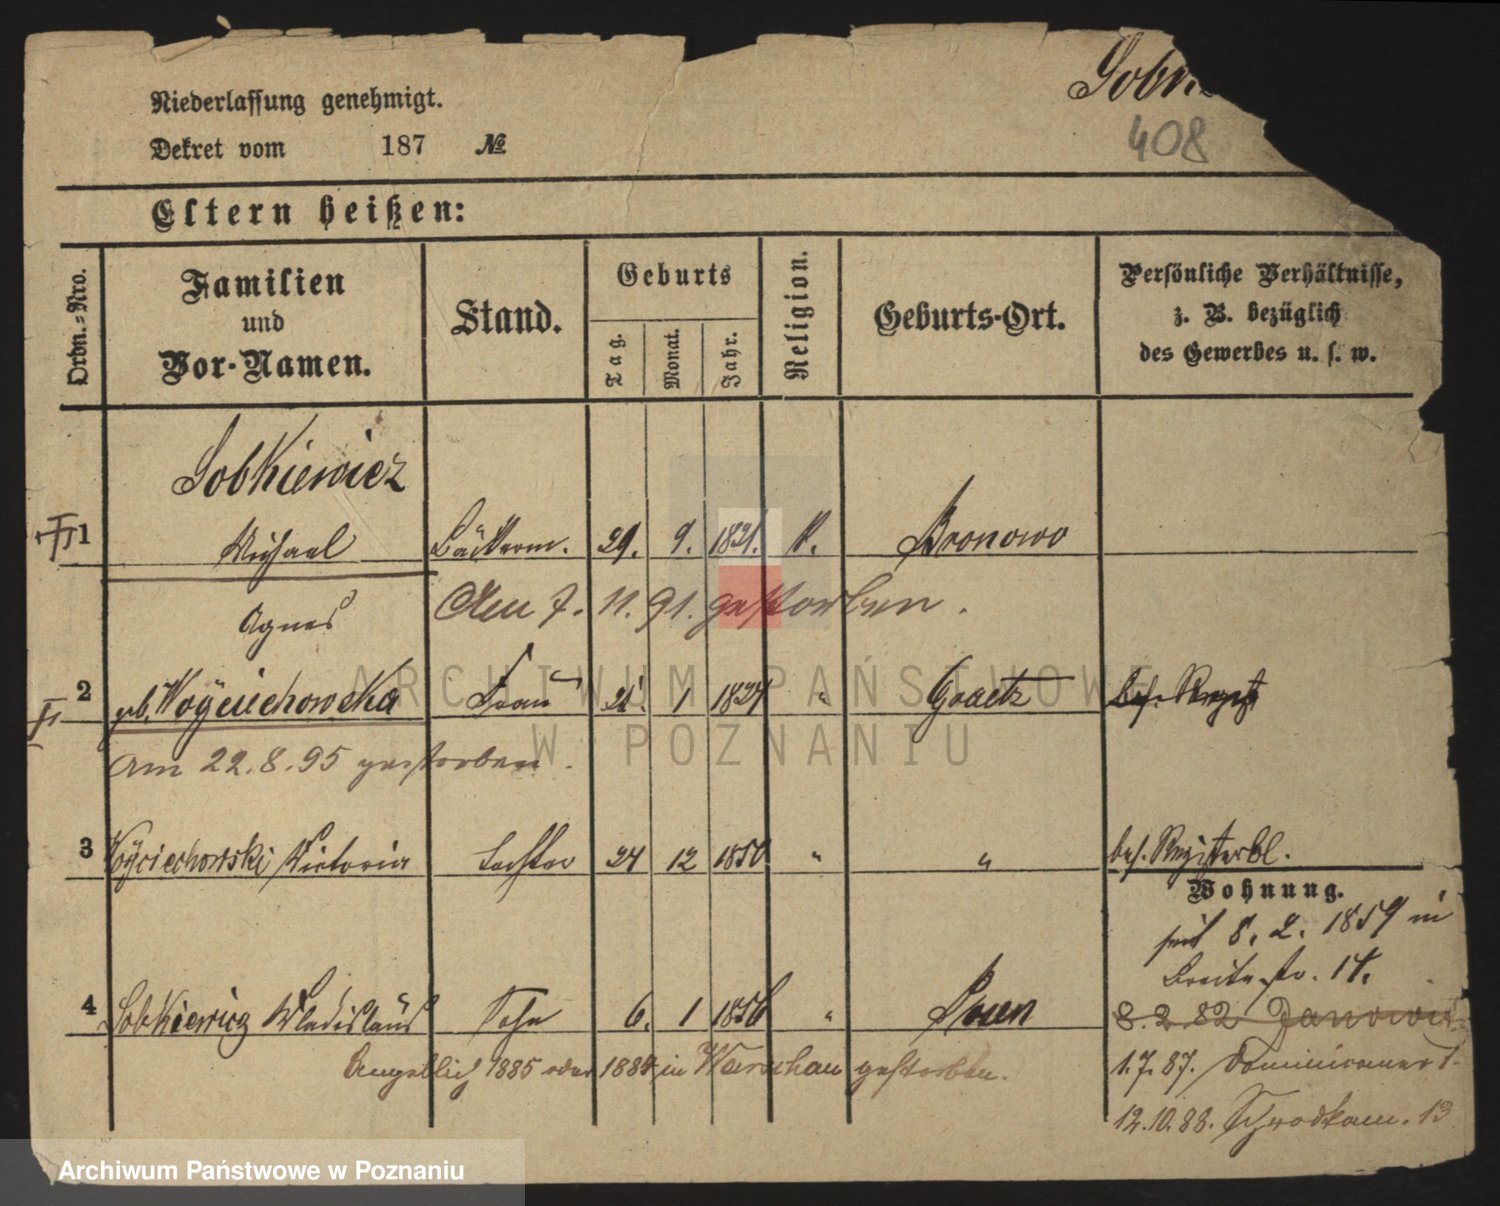 Sobk
408
Niederlassung genehmigt.
Dekret vom 187 №
Eltern heißen:
Ordn.-Nro.
Familien und Vor-Namen.
Stand.
Geburts
Tag. Monat. Jahr.
Religion.
Geburts-Ort.
Persönliche Verhältnisse,
z. B. bezüglich
des Gewerbes u. s. w.
Sobkiewicz
1 Michael Bäckerm. 29. 9. 1821. k. Bronowo
Den 7. 11. 91. gestorben.
Agnes
2 geb. Woyciechowska Frau 21. 1 1824 " Graetz
am 22.8.95 gestorben.
3 Woyciechowski Victoria Tochter 24 12 1850 " " bes. Registerbl.
Wohnung.
seit 8. 2. 1859 in
Breite str. 14.
4 Sobkiewicz Wladislaus Sohn 6. 1 1856 " Posen
8.2.82
Angeblich 1885 oder 1884 in Warschau gestorben.
1.7.87. Dominicaner
12.10.88. 13
Archiwum Państwowe w Poznaniu
ARCHIWUM PAŃSTWOWE
W POZNANIU